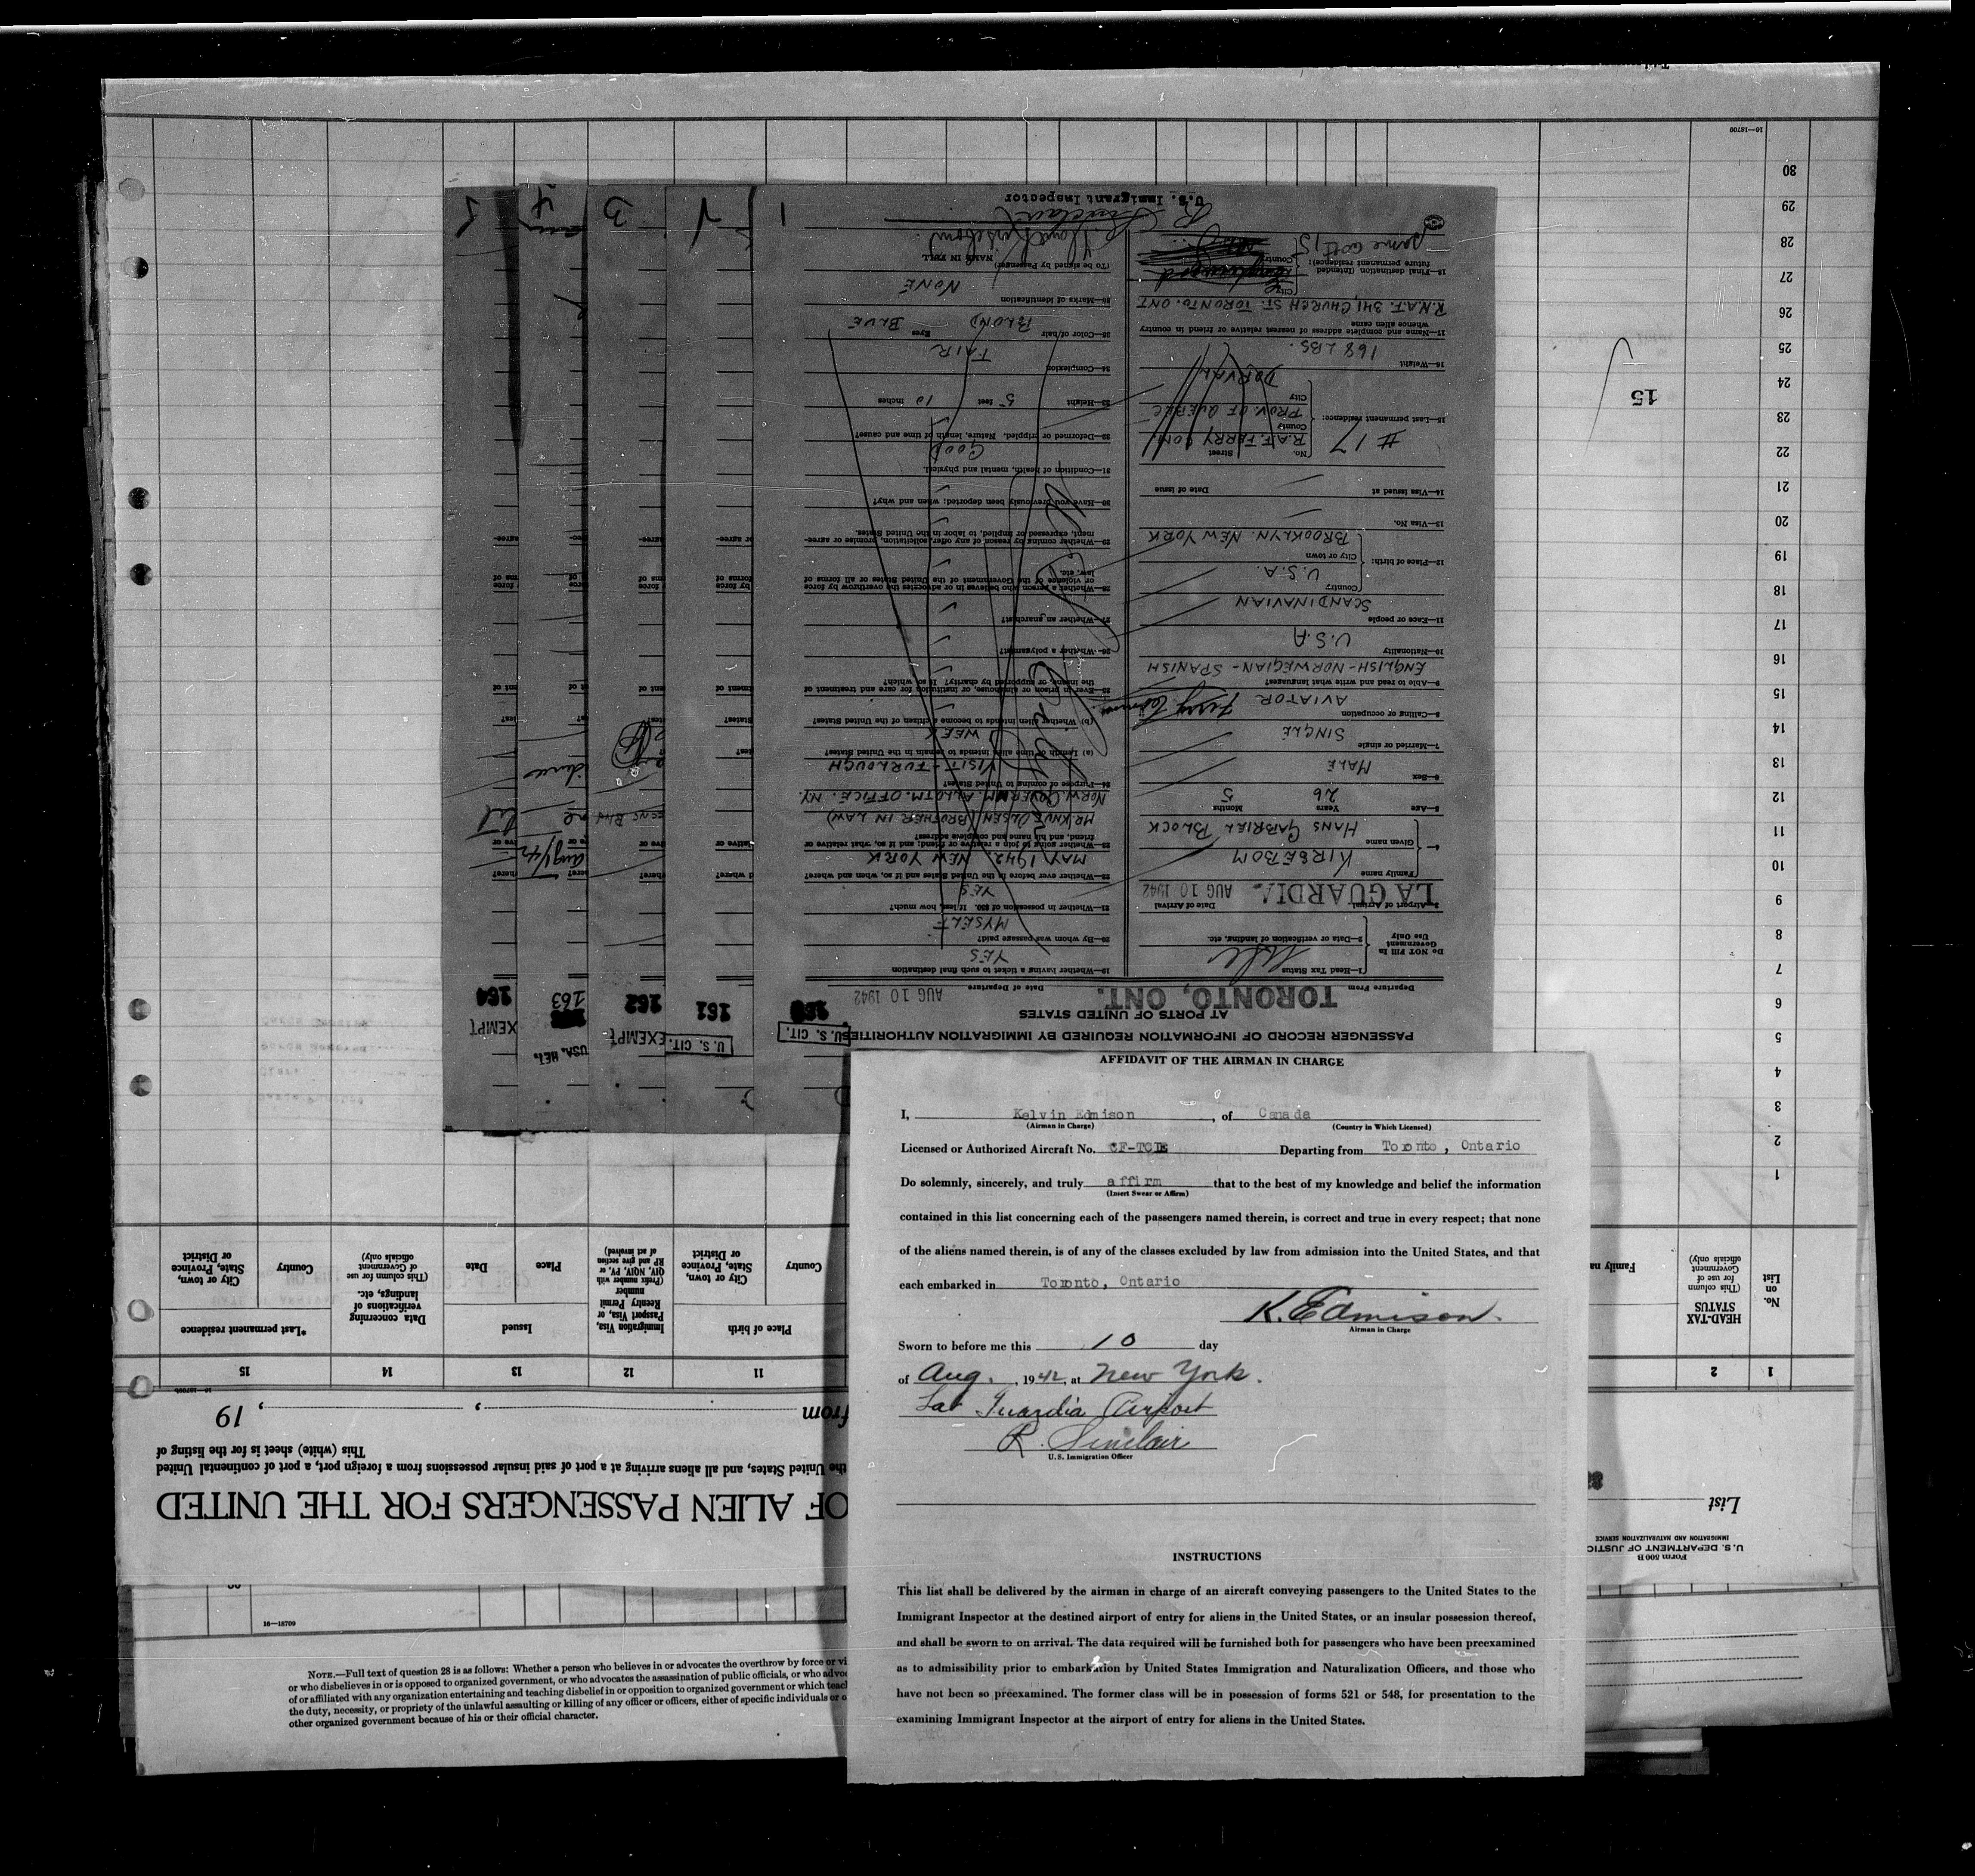 AFFIDAVIT OF THE AIRMAN IN CHARGE
I, Kelvin Edmison, of Canada
(Airman in Charge) (Country in Which Licensed)
Licensed or Authorized Aircraft No. CF-TCIE Departing from Toronto, Ontario
Do solemnly, sincerely, and truly affirm that to the best of my knowledge and belief the information
(Insert Swear or Affirm)
contained in this list concerning each of the passengers named therein, is correct and true in every respect; that none
of the aliens named therein, is of any of the classes excluded by law from admission into the United States, and that
each embarked in Toronto, Ontario
K. Edmison.
Airman in Charge
Sworn to before me this 10 day
of Aug., 1942, at New York.
La Guardia Airport
R. Sinclair
U.S. Immigration Officer
INSTRUCTIONS
This list shall be delivered by the airman in charge of an aircraft conveying passengers to the United States to the
Immigrant Inspector at the destined airport of entry for aliens in the United States, or an insular possession thereof,
and shall be sworn to on arrival. The data required will be furnished both for passengers who have been preexamined
as to admissibility prior to embarkation by United States Immigration and Naturalization Officers, and those who
have not been so preexamined. The former class will be in possession of forms 521 or 548, for presentation to the
examining Immigrant Inspector at the airport of entry for aliens in the United States.
PASSENGER RECORD OF INFORMATION REQUIRED BY IMMIGRATION AUTHORITIES
AT PORTS OF UNITED STATES
U. S. CIT.
U. S. CIT.
EXEMPT
USA. HET.
EXEMPT
161
162
163
164
Departure From TORONTO, ONT. Date of Departure AUG 10 1942
DO NOT Fill In Government Use Only
1—Head Tax Status
2—Data or verification of landing, etc.
3—Airport of Arrival LA GUARDIA. Date of Arrival AUG 10 1942
4— Family name KIRSEBOM
Given name HANS GABRIEL BLOCK
5—Age 26 Years 5 Months
6—Sex MALE
7—Married or single SINGLE
8—Calling or occupation AVIATOR
9—Able to read and write what languages?
ENGLISH - NORWEGIAN - SPANISH
10—Nationality U.S.A
11—Race or people SCANDINAVIAN
12—Place of birth: Country U.S.A.
City or town BROOKLYN. NEW YORK
13—Visa No.
14—Visa issued at Date of issue
15—Last permanent residence: No. Street R.A.F. FERRY COM.
# 17
County PROV. OF QUEBEC
City DORVAL
16—Weight 168 LBS.
17—Name and complete address of nearest relative or friend in country
whence alien came
R.N.A.F. 341, CHURCH ST. TORONTO. ONT
18—Final destination (Intended future permanent residence): City
Country
same as # 15
19—Whether having a ticket to such final destination
YES
20—By whom was passage paid?
MYSELF
21—Whether in possession of $50. If less, how much?
YES
22—Whether ever before in the United States and if so, when and where?
MAY 1942. NEW YORK
23—Whether going to join a relative or friend; and if so, what relative or
friend, and his name and complete address?
MR. KNUT OLSEN (BROTHER IN LAW)
NORW. GOVERNM. ALLOTM. OFFICE. NY.
24—Purpose of coming to United States?
VISIT - FURLOUGH
(a) Length of time alien intends to remain in the United States?
1 WEEK
(b) Whether alien intends to become a citizen of the United States?
25—Ever in prison or almshouse, or institution for care and treatment of
the insane, or supported by charity? If so which?
26—Whether a polygamist?
27—Whether an anarchist?
28—Whether a person who believes in or advocates the overthrow by force
or violence of the Government of the United States or all forms of
law, etc.
29—Whether coming by reason of any offer, solicitation, promise or agree-
ment, expressed or implied, to labor in the United States.
30—Have you previously been deported; when and why?
31—Condition of health, mental and physical.
GOOD
32—Deformed or crippled. Nature, length of time and cause?
33—Height 5 feet 10 inches
34—Complexion FAIR
35—Color of/hair BLOND Eyes BLUE
36—Marks of identification NONE
(To be signed by Passenger)
NAME IN FULL
R Sinclair
U.S. Immigrant Inspector
1
3
4
5
U.S. DEPARTMENT OF JUSTICE
IMMIGRATION AND NATURALIZATION SERVICE
Form 500 B
List
OF ALIEN PASSENGERS FOR THE UNITED
the United States, and all aliens arriving at a part of said insular possessions from a foreign port, a port of continental United
This (white) sheet is for the listing of
from , , 19
1 2 11 12 13 14 15
No. on List
HEAD-TAX STATUS
(This column for use of Government officials only)
Family na
Place of birth
Country
City or town, State, Province or District
Immigration Visa, Passport Visa, or Reentry Permit number
(Prefix number with QIV, NQIV, PV, or RP and give section of act involved)
Issued
Place
Date
Data concerning verifications of landings, etc.
(This column for use of Government officials only)
*Last permanent residence
Country
City or town, State, Province or District
1
2
3
4
5
6
7
8
9
10
11
12
13
14
15
16
17
18
19
20
21
22
23
24
25
26
27
28
29
30
15
16—18709
16—18709
NOTE.—Full text of question 28 is as follows: Whether a person who believes in or advocates the overthrow by force or vi
or who disbelieves in or is opposed to organized government, or who advocates the assassination of public officials, or who advoc
of or affiliated with any organization entertaining and teaching disbelief in or opposition to organized government or which teach
the duty, necessity, or propriety of the unlawful assaulting or killing of any officer or officers, either of specific individuals or o
other organized government because of his or their official character.